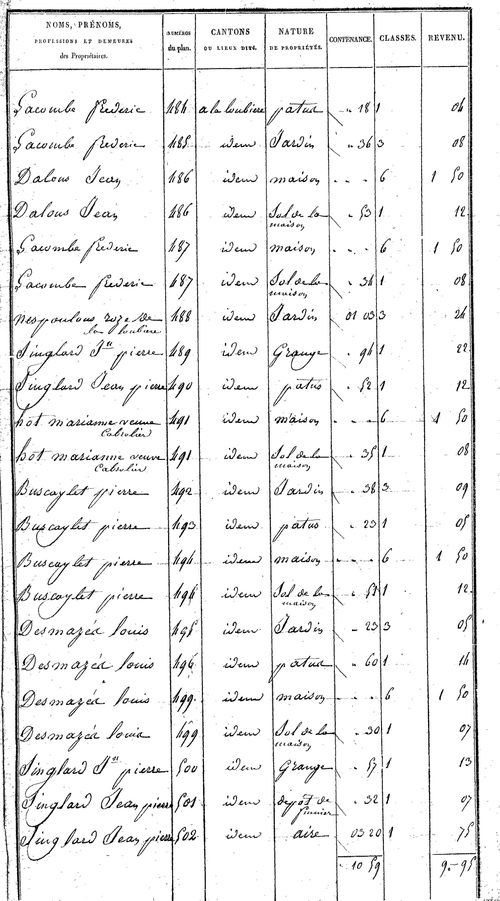 NOMS, PRÉNOMS, PROFESSIONS ET DEMEURES des Propriétaires. | NUMÉROS du plan. | CANTONS OU LIEUX DITS. | NATURE DE PROPRIÉTÉS. | CONTENANCE. | CLASSES. | REVENU.
Lacombe frederic 484 a la loubiere patus " 18 1 04
Lacombe frederic 485 idem Jardin " 36 3 08
Dalous Jean 486 idem maison . . . 6 1 50
Dalous Jean 486 idem Sol de la maison " 53 1 12
Lacombe frederic 487 idem maison . . . 6 1 50
Lacombe frederic 487 idem Sol de la maison " 34 1 08
nespoulous roze de la loubiere 488 idem Jardin 01 03 3 24
Singlard Jn pierre 489 idem Grange . 94 1 22
Singlard Jean pierre 490 idem patus . 52 1 12
hot marianne veuve Cabrolier 491 idem maison . . . 6 1 50
hot marianne veuve Cabrolier 491 idem Sol de la maison . 35 1 08
Buscaylet pierre 492 idem Jardin . 38 3 09
Buscaylet pierre 493 idem patus . 23 1 05
Buscaylet pierre 494 idem maison . . . 6 1 50
Buscaylet pierre 494 idem Sol de la maison . 51 1 12
Desmazés louis 495 idem Jardin . 23 3 05
Desmazés louis 496 idem patus . 60 1 14
Desmazés louis 499 idem maison . . . 6 1 50
Desmazés louis 499 idem Sol de la maison . 30 1 07
Singlard Jn pierre 500 idem Grange . 57 1 13
Singlard Jean pierre 501 idem depot de fumier . 32 1 07
Singlard Jean pierre 502 idem aire 03 20 1 75
10 59 9.-95